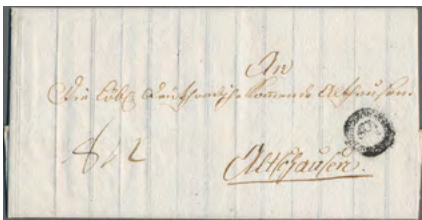 An
Die Löbl. Deutschordische Kommende Altshausen
Altshausen.